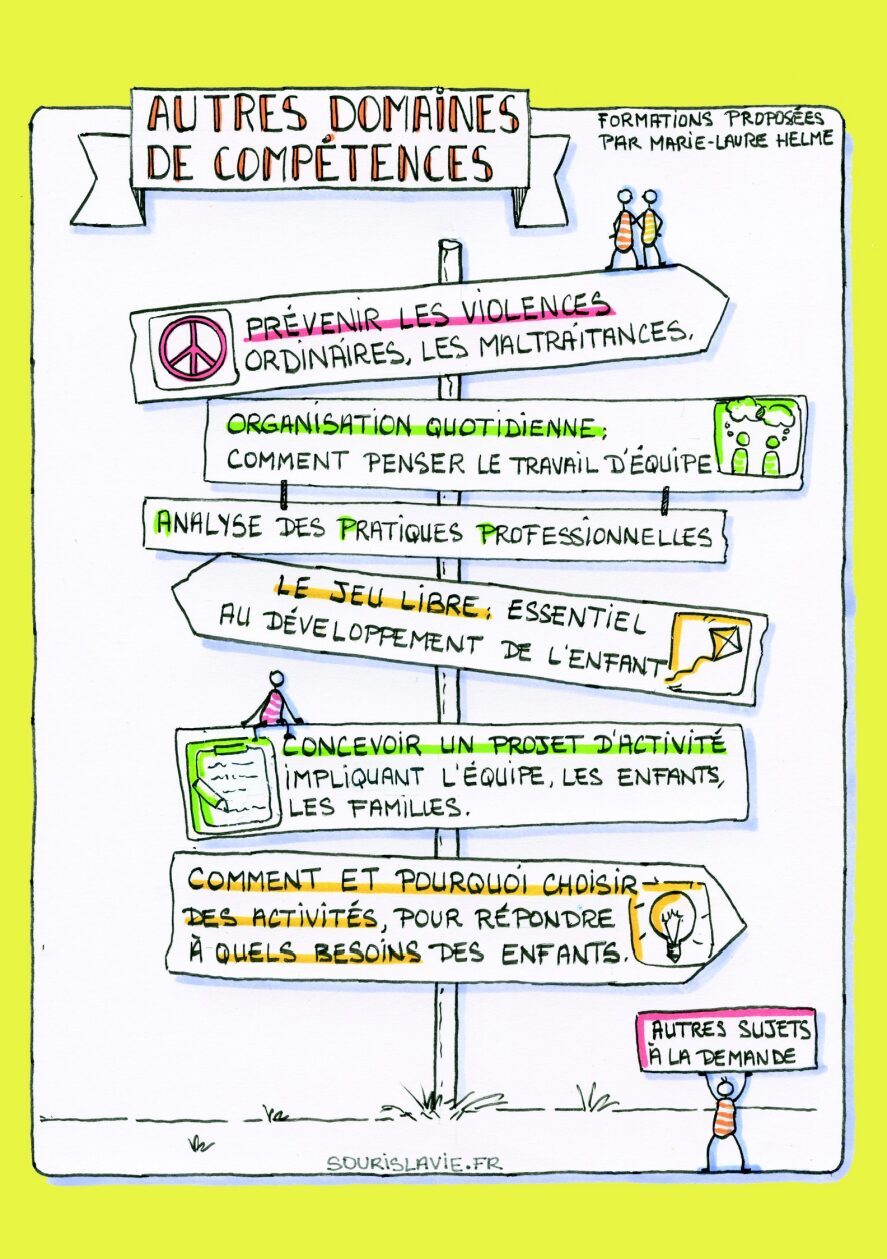 AUTRES DOMAINES
DE COMPÉTENCES
FORMATIONS PROPOSÉES
PAR MARIE-LAURE HELME
PRÉVENIR LES VIOLENCES
ORDINAIRES, LES MALTRAITANCES.
ORGANISATION QUOTIDIENNE;
COMMENT PENSER LE TRAVAIL D'ÉQUIPE
ANALYSE DES PRATIQUES PROFESSIONNELLES
LE JEU LIBRE; ESSENTIEL
AU DÉVELOPPEMENT DE L'ENFANT
CONCEVOIR UN PROJET D'ACTIVITÉ
IMPLIQUANT L'ÉQUIPE, LES ENFANTS,
LES FAMILLES.
COMMENT ET POURQUOI CHOISIR
DES ACTIVITÉS, POUR RÉPONDRE
À QUELS BESOINS DES ENFANTS.
AUTRES SUJETS
À LA DEMANDE
SOURISLAVIE.FR